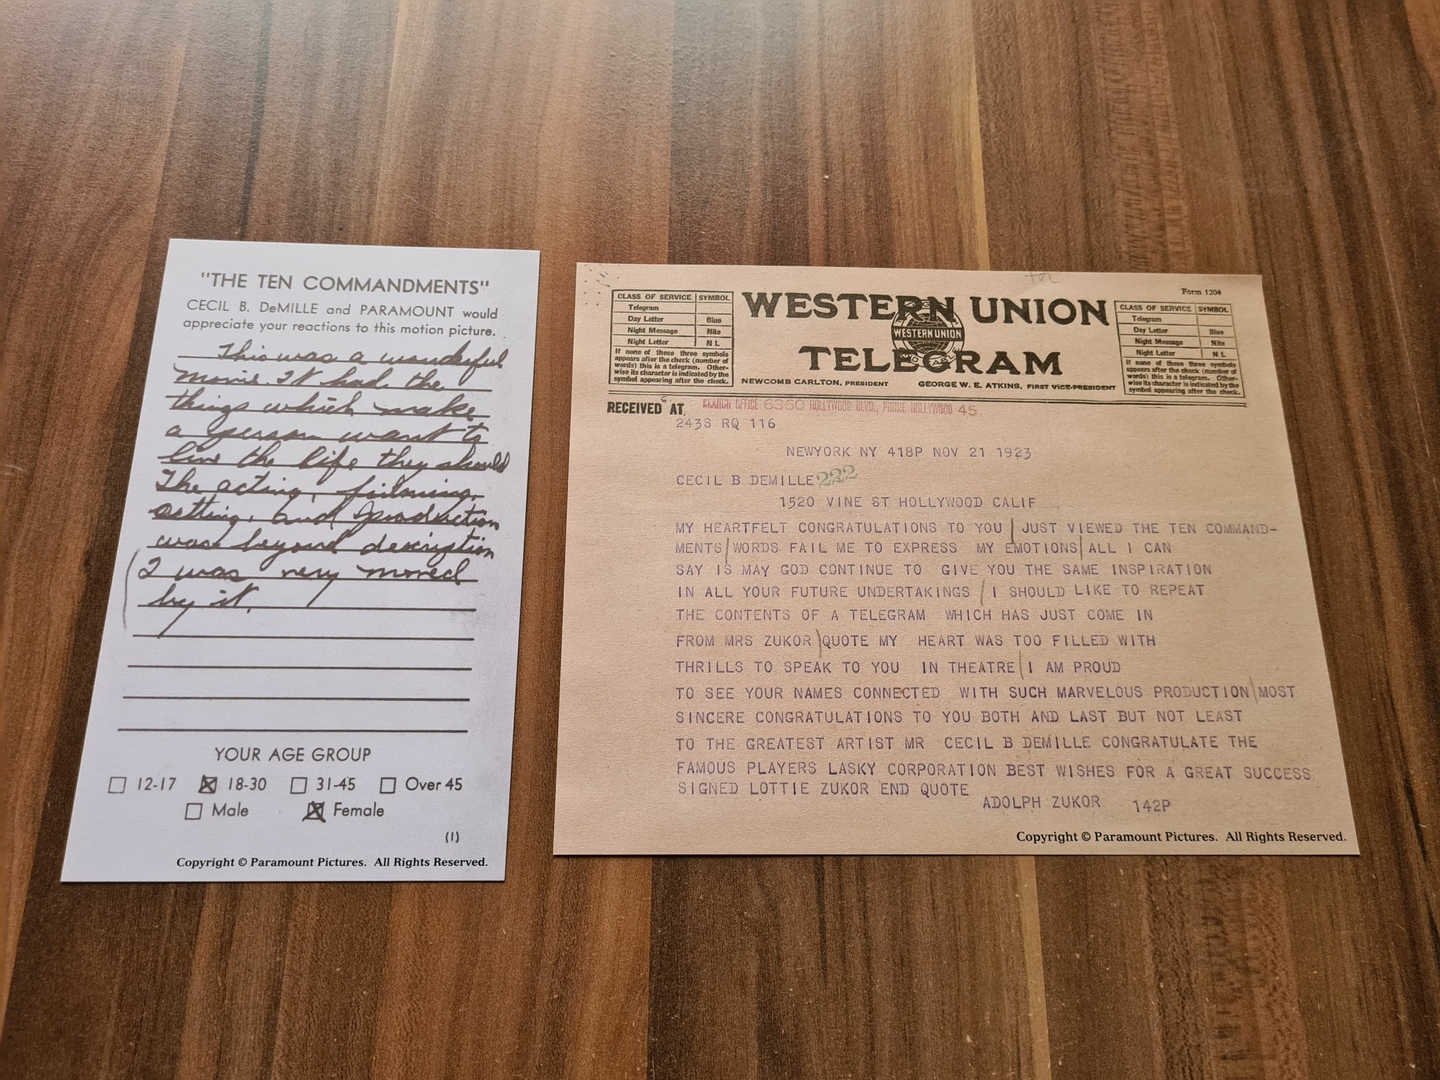 "THE TEN COMMANDMENTS"
CECIL B. DeMILLE and PARAMOUNT would
appreciate your reactions to this motion picture.
This was a wonderful
movie. It had the
things which make
a person want to
live the life they should
The acting, filming,
setting, and production
was beyond description
I was very moved
by it.
YOUR AGE GROUP
12-17 18-30 31-45 Over 45
Male Female
(1)
Copyright © Paramount Pictures. All Rights Reserved.
Form 1204
CLASS OF SERVICE SYMBOL
Telegram
Day Letter Blue
Night Message Nite
Night Letter N L
If none of these three symbols
appears after the check (number of
words) this is a telegram. Other-
wise its character is indicated by the
symbol appearing after the check.
WESTERN UNION
WESTERN UNION
TELEGRAM
NEWCOMB CARLTON, PRESIDENT GEORGE W. E. ATKINS, FIRST VICE-PRESIDENT
CLASS OF SERVICE SYMBOL
Telegram
Day Letter Blue
Night Message Nite
Night Letter N L
If none of these three symbols
appears after the check (number of
words) this is a telegram. Other-
wise its character is indicated by the
symbol appearing after the check.
RECEIVED AT BRANCH OFFICE 6360 HOLLYWOOD BLVD., PHONE HOLLYWOOD 45
243S RQ 116
NEWYORK NY 418P NOV 21 1923
CECIL B DEMILLE 222
1520 VINE ST HOLLYWOOD CALIF
MY HEARTFELT CONGRATULATIONS TO YOU | JUST VIEWED THE TEN COMMAND-
MENTS | WORDS FAIL ME TO EXPRESS MY EMOTIONS | ALL I CAN
SAY IS MAY GOD CONTINUE TO GIVE YOU THE SAME INSPIRATION
IN ALL YOUR FUTURE UNDERTAKINGS / I SHOULD LIKE TO REPEAT
THE CONTENTS OF A TELEGRAM WHICH HAS JUST COME IN
FROM MRS ZUKOR | QUOTE MY HEART WAS TOO FILLED WITH
THRILLS TO SPEAK TO YOU IN THEATRE | I AM PROUD
TO SEE YOUR NAMES CONNECTED WITH SUCH MARVELOUS PRODUCTION | MOST
SINCERE CONGRATULATIONS TO YOU BOTH AND LAST BUT NOT LEAST
TO THE GREATEST ARTIST MR CECIL B DEMILLE CONGRATULATE THE
FAMOUS PLAYERS LASKY CORPORATION BEST WISHES FOR A GREAT SUCCESS
SIGNED LOTTIE ZUKOR END QUOTE
ADOLPH ZUKOR 142P
Copyright © Paramount Pictures. All Rights Reserved.